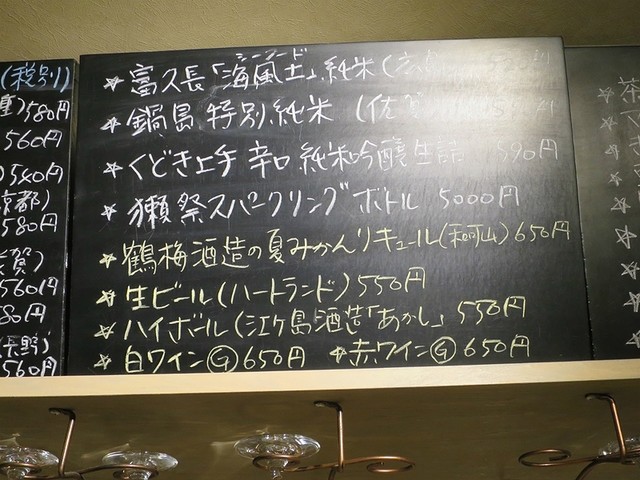 (税別)
580円
560円
540円
京都)
580円
賀)
560円
80円
(長野)
560円
シーフード
☆富久長「海風土」純米(広
☆鍋島 特別純米 (佐賀
☆くどき上手 辛口 純米吟醸生詰 590円
☆獺祭スパークリングボトル 5000円
☆鶴梅酒造の夏みかんリキュール(和歌山)650円
☆生ビール(ハートランド)550円
☆ハイボール(江ヶ島酒造「あかし」 550円
☆白ワインⒼ650円 ☆赤ワインⒼ650円